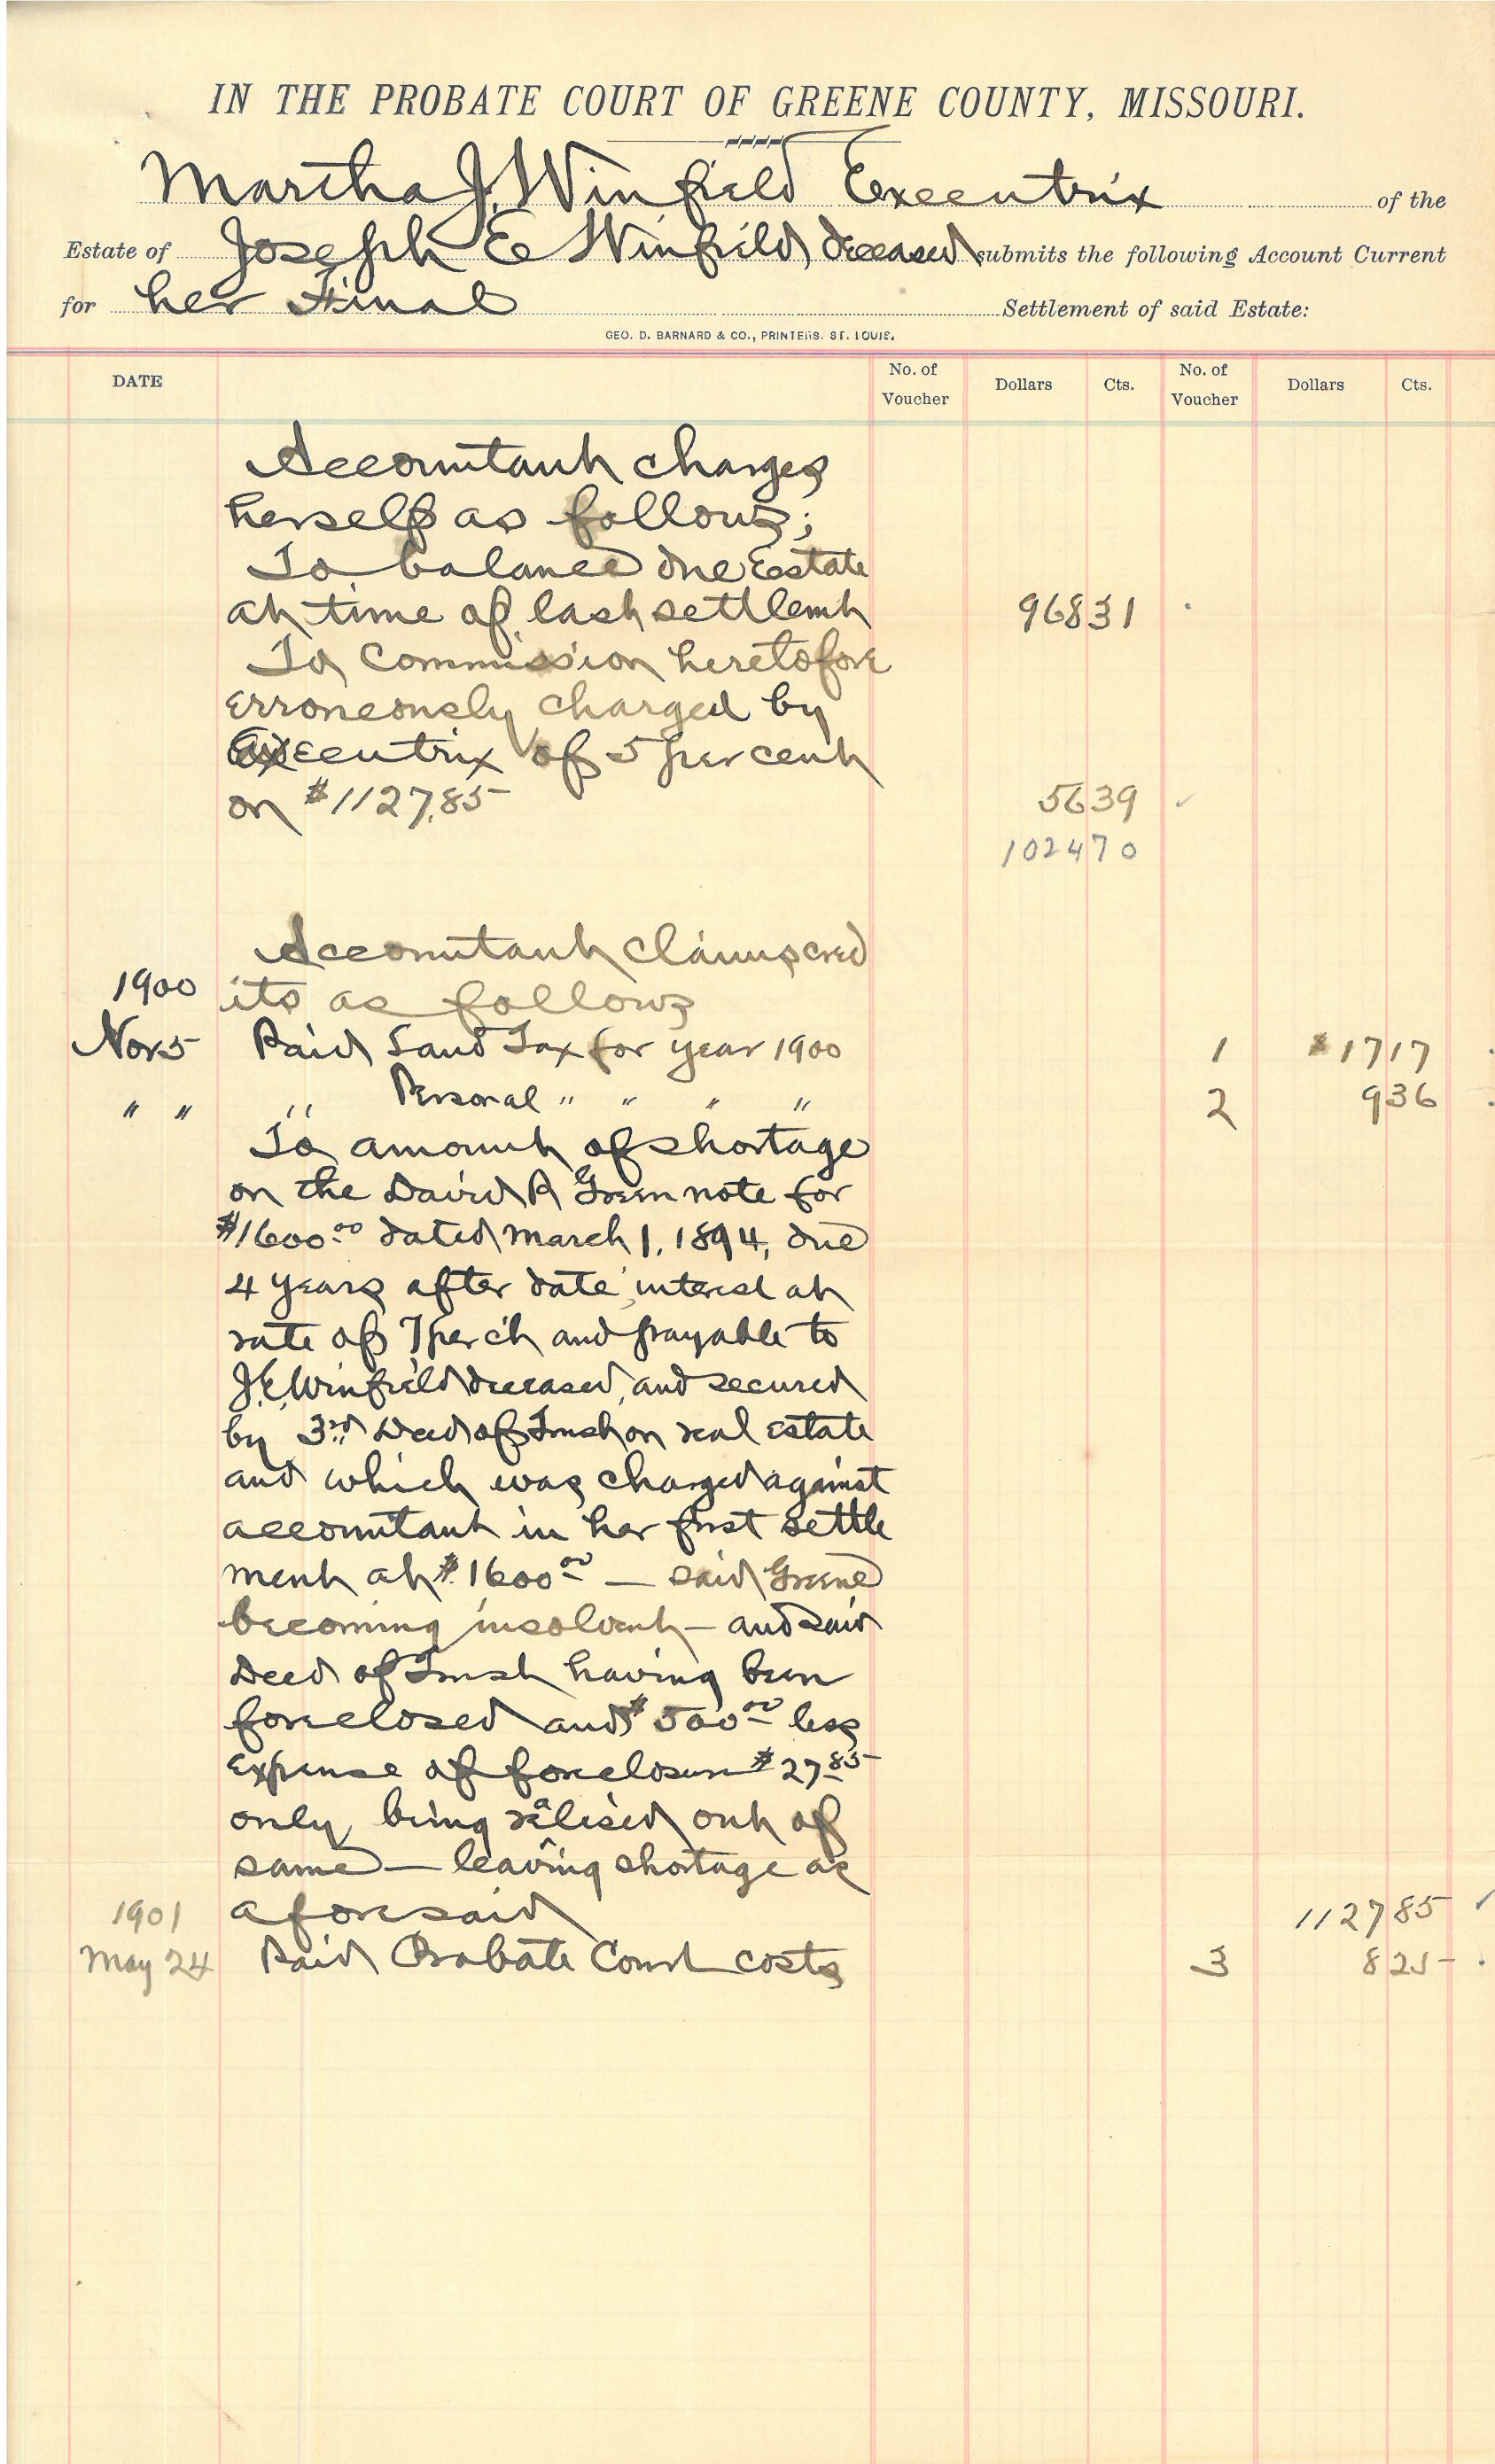 IN THE PROBATE COURT OF GREENE COUNTY, MISSOURI.
Martha J. Winfield Executrix of the
Estate of Joseph E Winfield, deceased submits the following Account Current
for her Final Settlement of said Estate:
GEO. D. BARNARD & CO., PRINTERS. ST. LOUIS.
DATE No. of Voucher Dollars Cts. No. of Voucher Dollars Cts.
Accountant charges
herself as follows;
To balance due Estate
at time of last settlemt 968 31
To Commission heretofore
erroneously charged by
Executrix of 5 per cent
on $1127.85 56 39
1024 70
Accountant claims cred
1900 its as follows
Nov 5 Paid Land Tax for year 1900 1 $17 17
" " " Personal " " " " 2 9 36
To amount of shortage
on the David R Green note for
$1600.00 dated March 1, 1894, due
4 years after date, interest at
rate of 7 per ct and payable to
J.E. Winfield deceased, and secured
by 3rd Deed of Trust on real estate
and which was charged against
accountant in her first settle
ment at $1600.00 — said Greene
becoming insolvent — and said
Deed of Trust having been
foreclosed and $500.00 less
expense of foreclosure $27.85
only being realised out of
same — leaving shortage as
1901 aforesaid 1127 85
May 24 Paid Probate Court costs 3 8 25